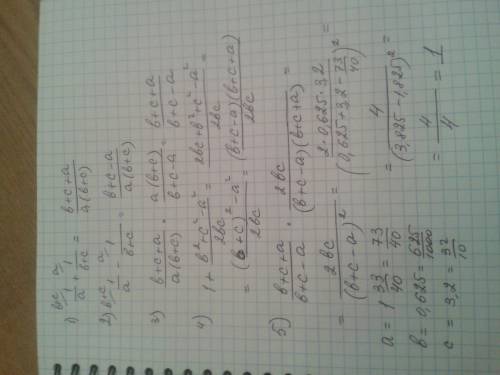 1) 1/a + 1/(b+c) = (b+c+a)/(a(b+c))
2) 1/a - 1/(b+c) = (b+c-a)/(a(b+c))
3) (b+c+a)/(a(b+c)) · (a(b+c))/(b+c-a) = (b+c+a)/(b+c-a)
4) 1 + (b²+c²-a²)/(2bc) = (2bc+b²+c²-a²)/(2bc) =
= ((b+c)²-a²)/(2bc) = ((b+c-a)(b+c+a))/(2bc)
5) (b+c+a)/(b+c-a) · (2bc)/((b+c-a)(b+c+a)) =
= (2bc)/(b+c-a)² = (2·0,625·3,2)/(0,625+3,2-73/40)² =
a = 1 33/40 = 73/40 = 4/(3,825-1,825)² =
b = 0,625 = 625/1000 = 4/4 = 1
c = 3,2 = 32/10